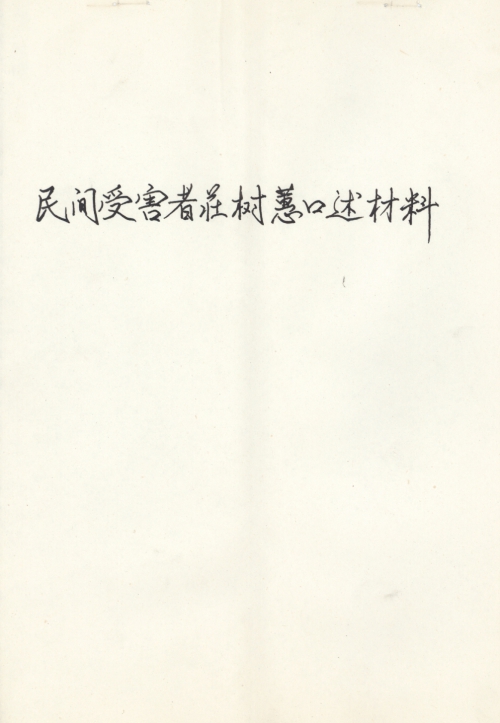 民间受害者莊树蕙口述材料